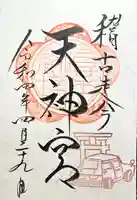 稽古今
天神宮
令和四年四月二十九日